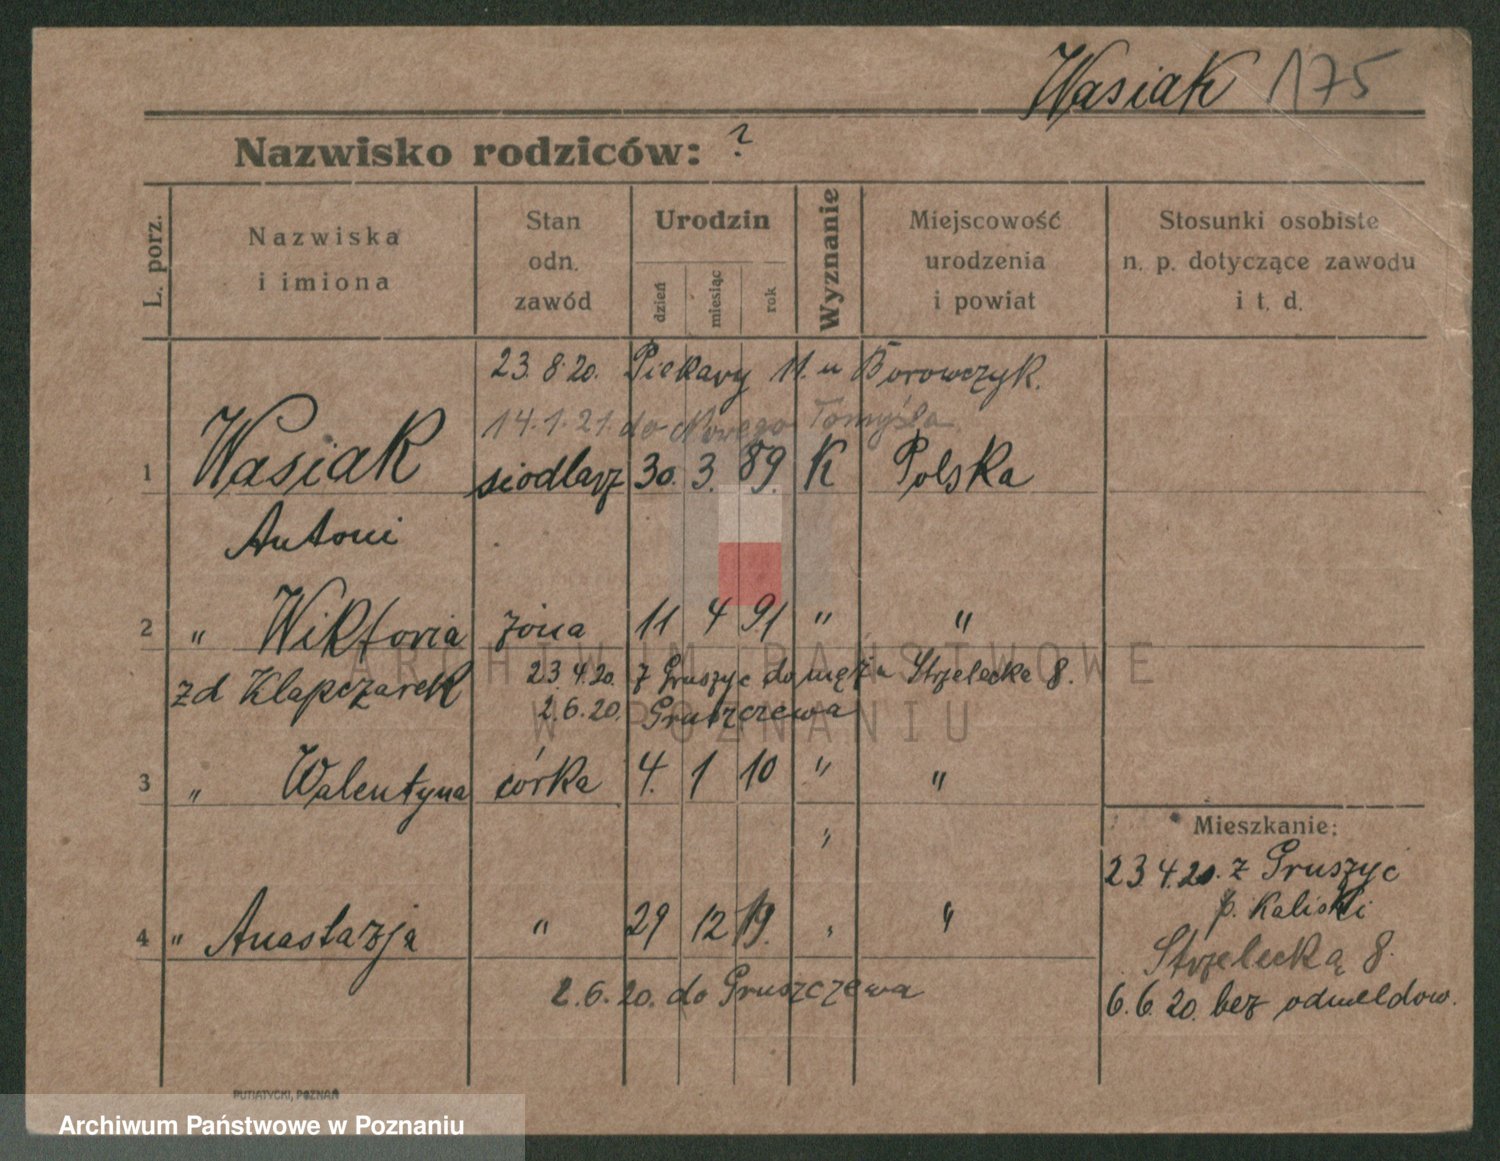 Wasiak 175
Nazwisko rodziców: ?
L. porz.
Nazwiska
i imiona
Stan
odn.
zawód
Urodzin
dzień
miesiąc
rok
Wyznanie
Miejscowość
urodzenia
i powiat
Stosunki osobiste
n. p. dotyczące zawodu
i t. d.
23.8.20. Piekary 11. u Borowczyk.
14.1.21. do Nowego Tomyśla
1 Wasiak siodlarz 30. 3. 89. K Polska
Antoni
2 " Wiktoria żona 11 4 91 " "
zd Klapczarek 23.4.20. z Gruszyc do męża Strzelecka 8.
2.6.20. Gruszczewa
3 " Walentyna córka 4. 1 10 " "
"
4 " Anastazja " 29 12 19. " "
2.6.20. do Gruszczewa
Mieszkanie:
23 4.20. z Gruszyc
p. Kaliski
Strzelecką 8.
6.6.20. bez odmeldow.
PUTIATYCKI, POZNAŃ
ARCHIWUM PAŃSTWOWE
W POZNANIU
Archiwum Państwowe w Poznaniu